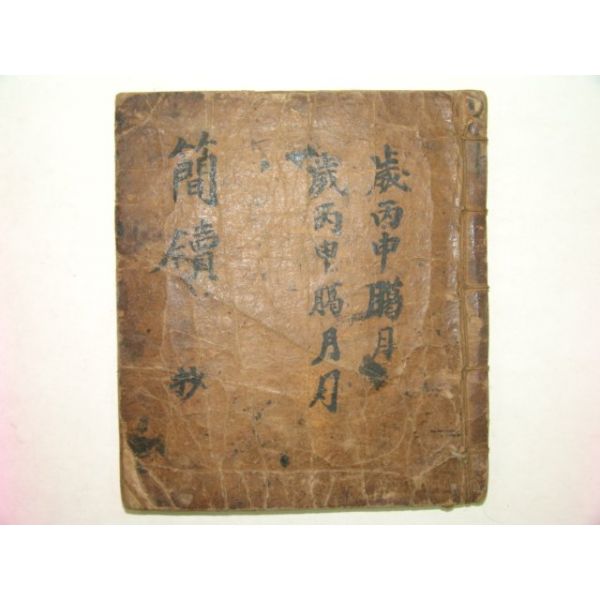 歲丙申臈月
歲丙申臈月月
簡牘 抄